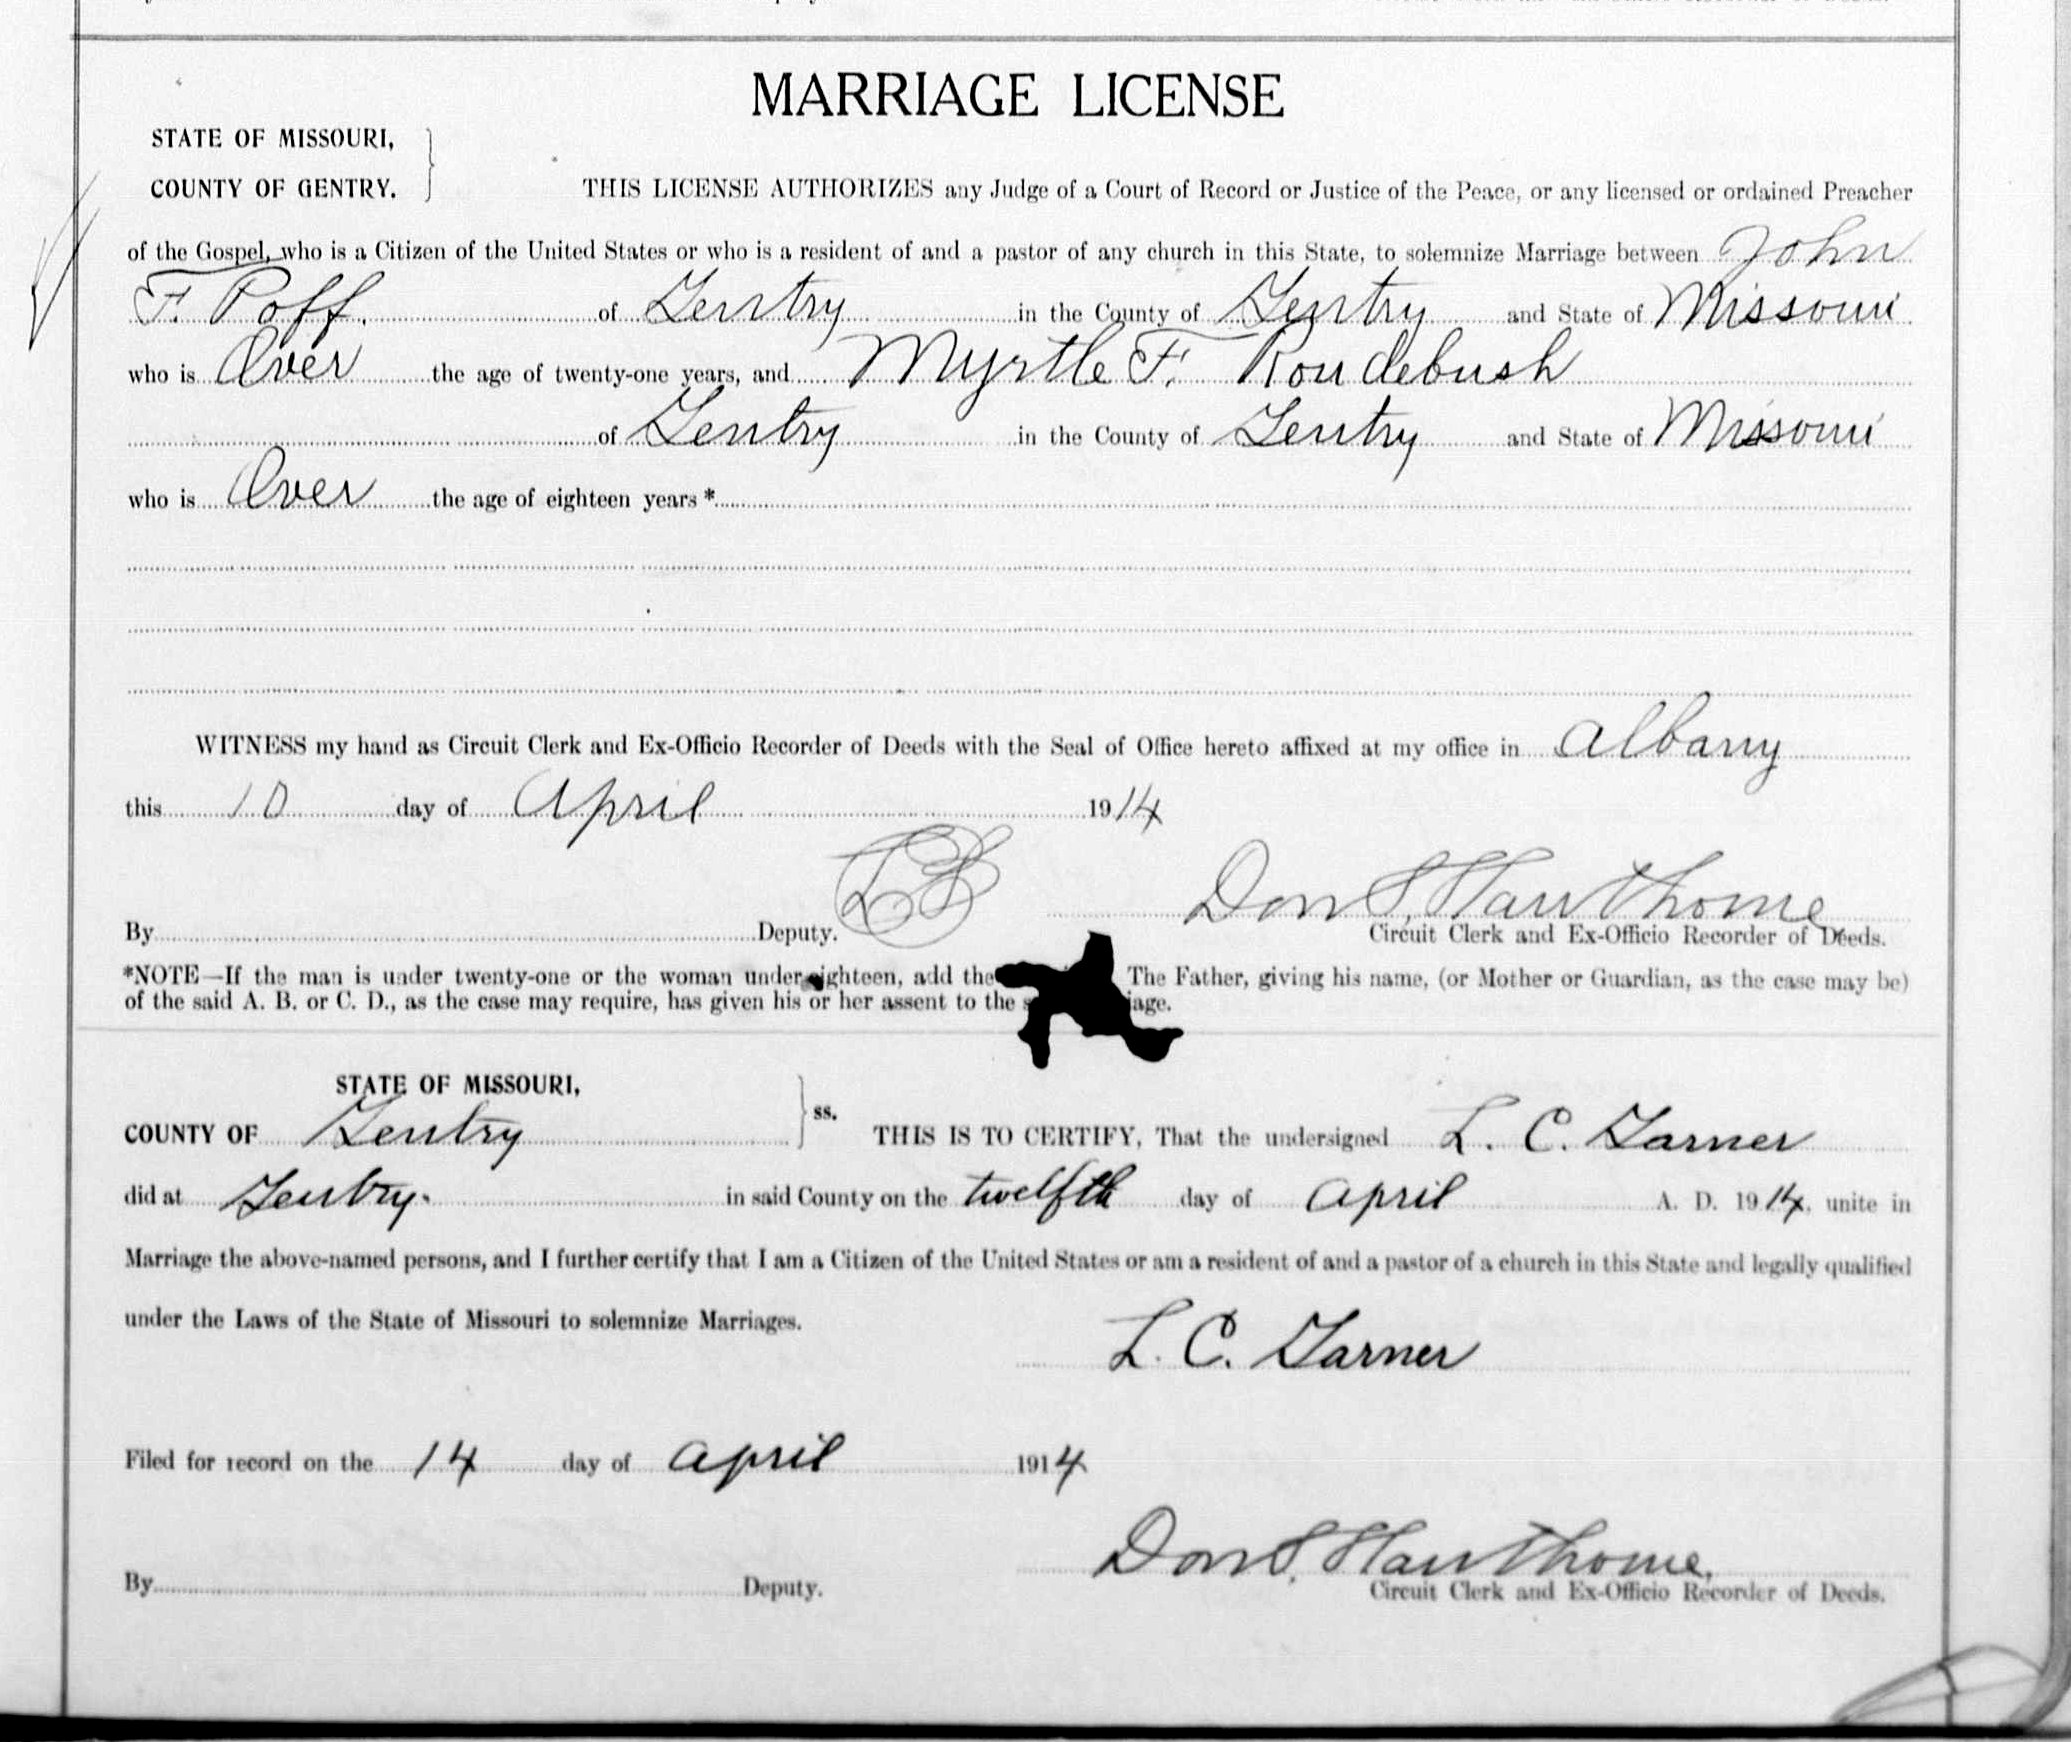 MARRIAGE LICENSE
STATE OF MISSOURI,
COUNTY OF GENTRY.
THIS LICENSE AUTHORIZES any Judge of a Court of Record or Justice of the Peace, or any licensed or ordained Preacher
of the Gospel, who is a Citizen of the United States or who is a resident of and a pastor of any church in this State, to solemnize Marriage between John
F. Poff. of Gentry in the County of Gentry and State of Missouri
who is Over the age of twenty-one years, and Myrtle F. Roudebush
of Gentry in the County of Gentry and State of Missouri
who is Over the age of eighteen years *
WITNESS my hand as Circuit Clerk and Ex-Officio Recorder of Deeds with the Seal of Office hereto affixed at my office in Albany
this 10 day of April 1914
LS
Don S. Hawthorne
By Deputy.
Circuit Clerk and Ex-Officio Recorder of Deeds.
*NOTE—If the man is under twenty-one or the woman under eighteen, add the The Father, giving his name, (or Mother or Guardian, as the case may be)
of the said A. B. or C. D., as the case may require, has given his or her assent to the
STATE OF MISSOURI,
COUNTY OF Gentry ss. THIS IS TO CERTIFY, That the undersigned L. C. Garner
did at Gentry. in said County on the twelfth day of April A. D. 1914, unite in
Marriage the above-named persons, and I further certify that I am a Citizen of the United States or am a resident of and a pastor of a church in this State and legally qualified
under the Laws of the State of Missouri to solemnize Marriages.
L. C. Garner
Filed for record on the 14 day of April 1914
Don S. Hawthorne.
By Deputy.
Circuit Clerk and Ex-Officio Recorder of Deeds.